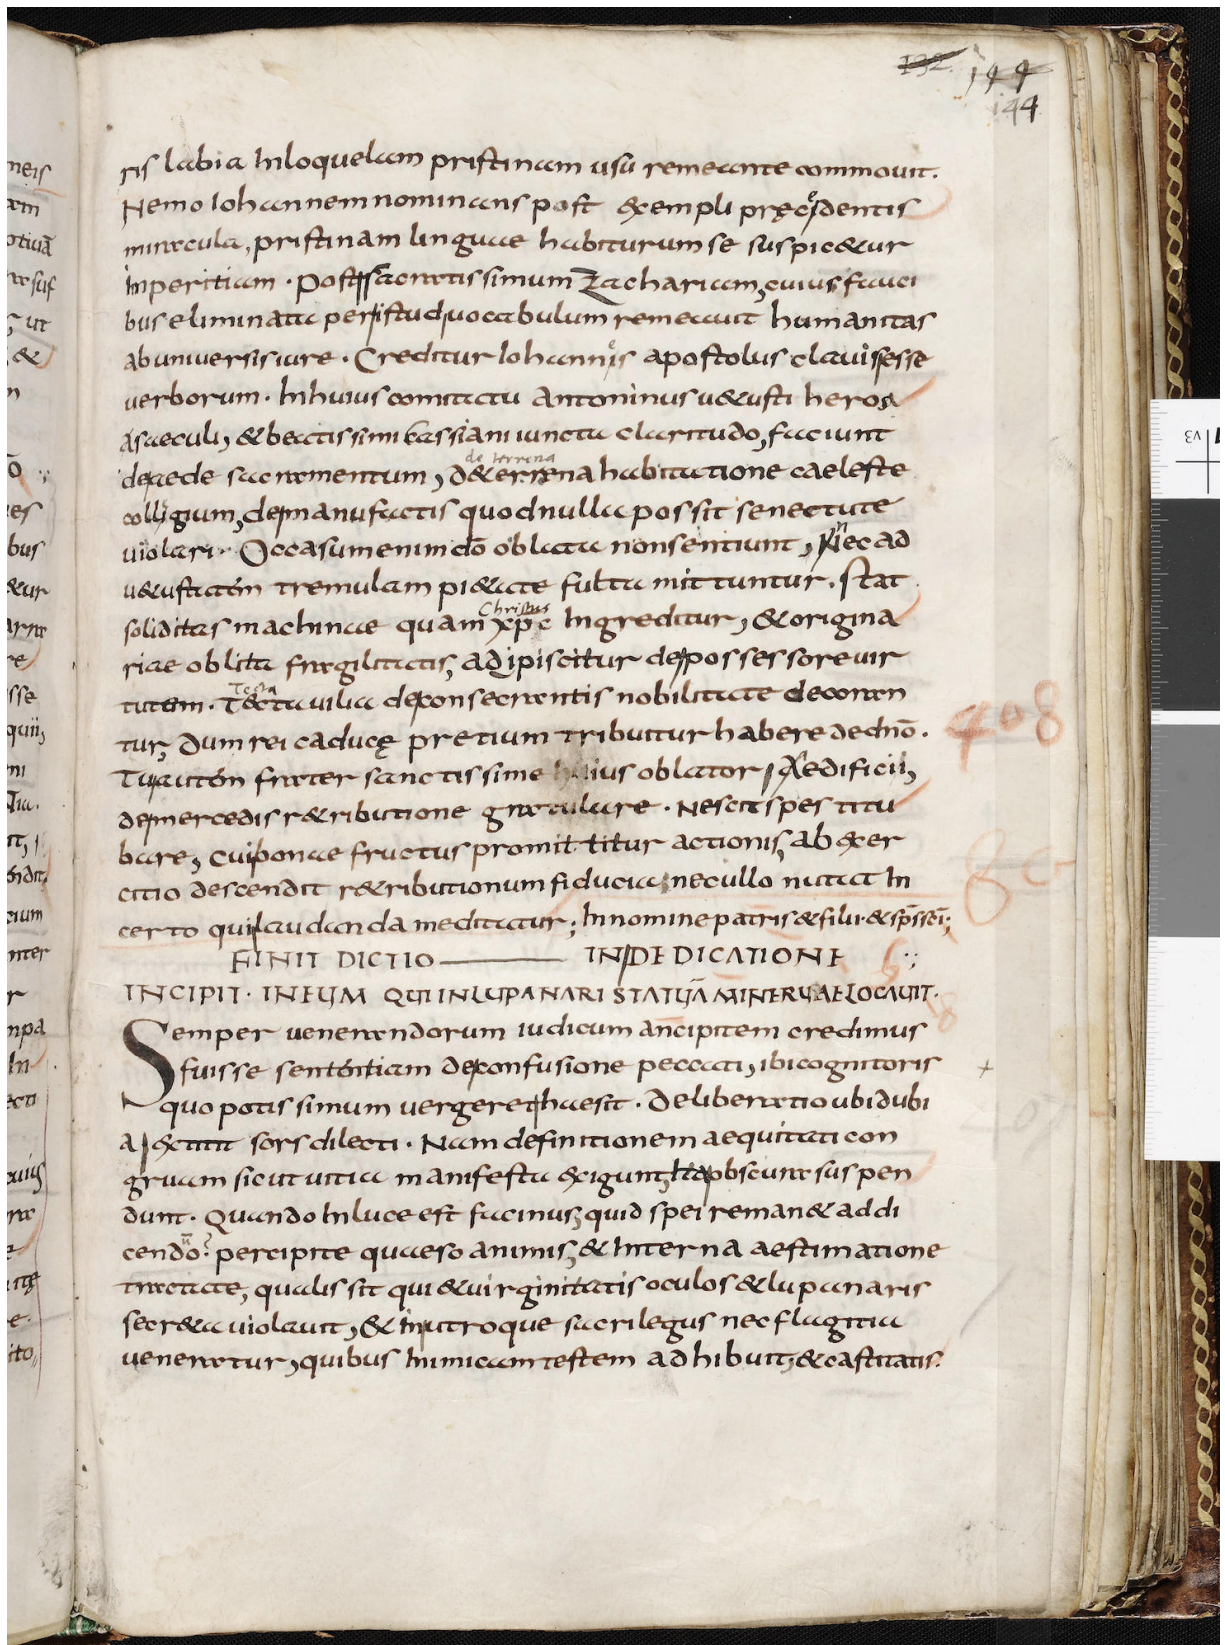 132. 144
144
ris labia Inloquelam pristinam usū remeante commouit.
Nemo Iohannem nominans post exempli pręcidentis
miracula, pristinam linguae habiturum se suspicetur
Inperitiam. Post sacratissimum Zachariam, cuius fauci
bus eliminata per istud uocabulum remeauit humanitas
ab uniuersis iure. Creditur Iohannis apostolus clauis esse
uerborum. In huius comitatu Antoninus uetusti heros
saeculi, & beatissimi Cassiani iuncta claritudo, faciunt
de aede sacramentum, d&errena habitatione caeleste
de terrena
colligium, de manufactis quod nulla possit senectute
uiolari. Occasum enim dō oblata non sentiunt, Nec ad
uetustatem tremulam pietate fulta mittuntur. Stat
soliditas machinae quam xp̄c Ingreditur, & origina
Christus
riae oblita fragilitatis, adipiscitur de possessore uir
tutem. T&cta uilia de consecrantis nobilitate decoran
Tecta
tur, dum rei caducę pretium tribuitur habere de dn̄o.
Tu autem frater sanctissime huius oblator Aedificii,
de mercedis r&ributione gratulare. Nescit spes titu
bare, cui bonae fructus promittitur actionis, ab exer
citio descendit r&ributionum fiducia, nec ullo nutat In
certo qui laudanda meditatur; In nomine patris & filii & sp̄s sc̄i;
FINIT DICTIO IN DEDICATIONE
INCIPIT. IN EUM QUI IN LUPANARI STATUĀ MINERUAE LOCAUIT.
Semper uenerandorum iudicum ancipitem credimus
fuisse sententiam de confusione peccati, ibi cognitoris
quo potissimum uergeret haesit. Deliberatio ubi dubi
a extitit sors dilecti. Nam definitionem aequitati con
gruam sicut uitia manifesta exigunt, ita obscura suspen
dunt. Quando In luce est facinus, quid spei reman& addi
cendo? percipite quaeso animis, & Interna aestimatione
tractate, qualis sit qui & uirginitatis oculos & lupanaris
secr&a uiolauit, & In utroque sacrilegus nec flagitia
ueneratur, quibus Inimicam testem adhibuit, & castitatis.
408